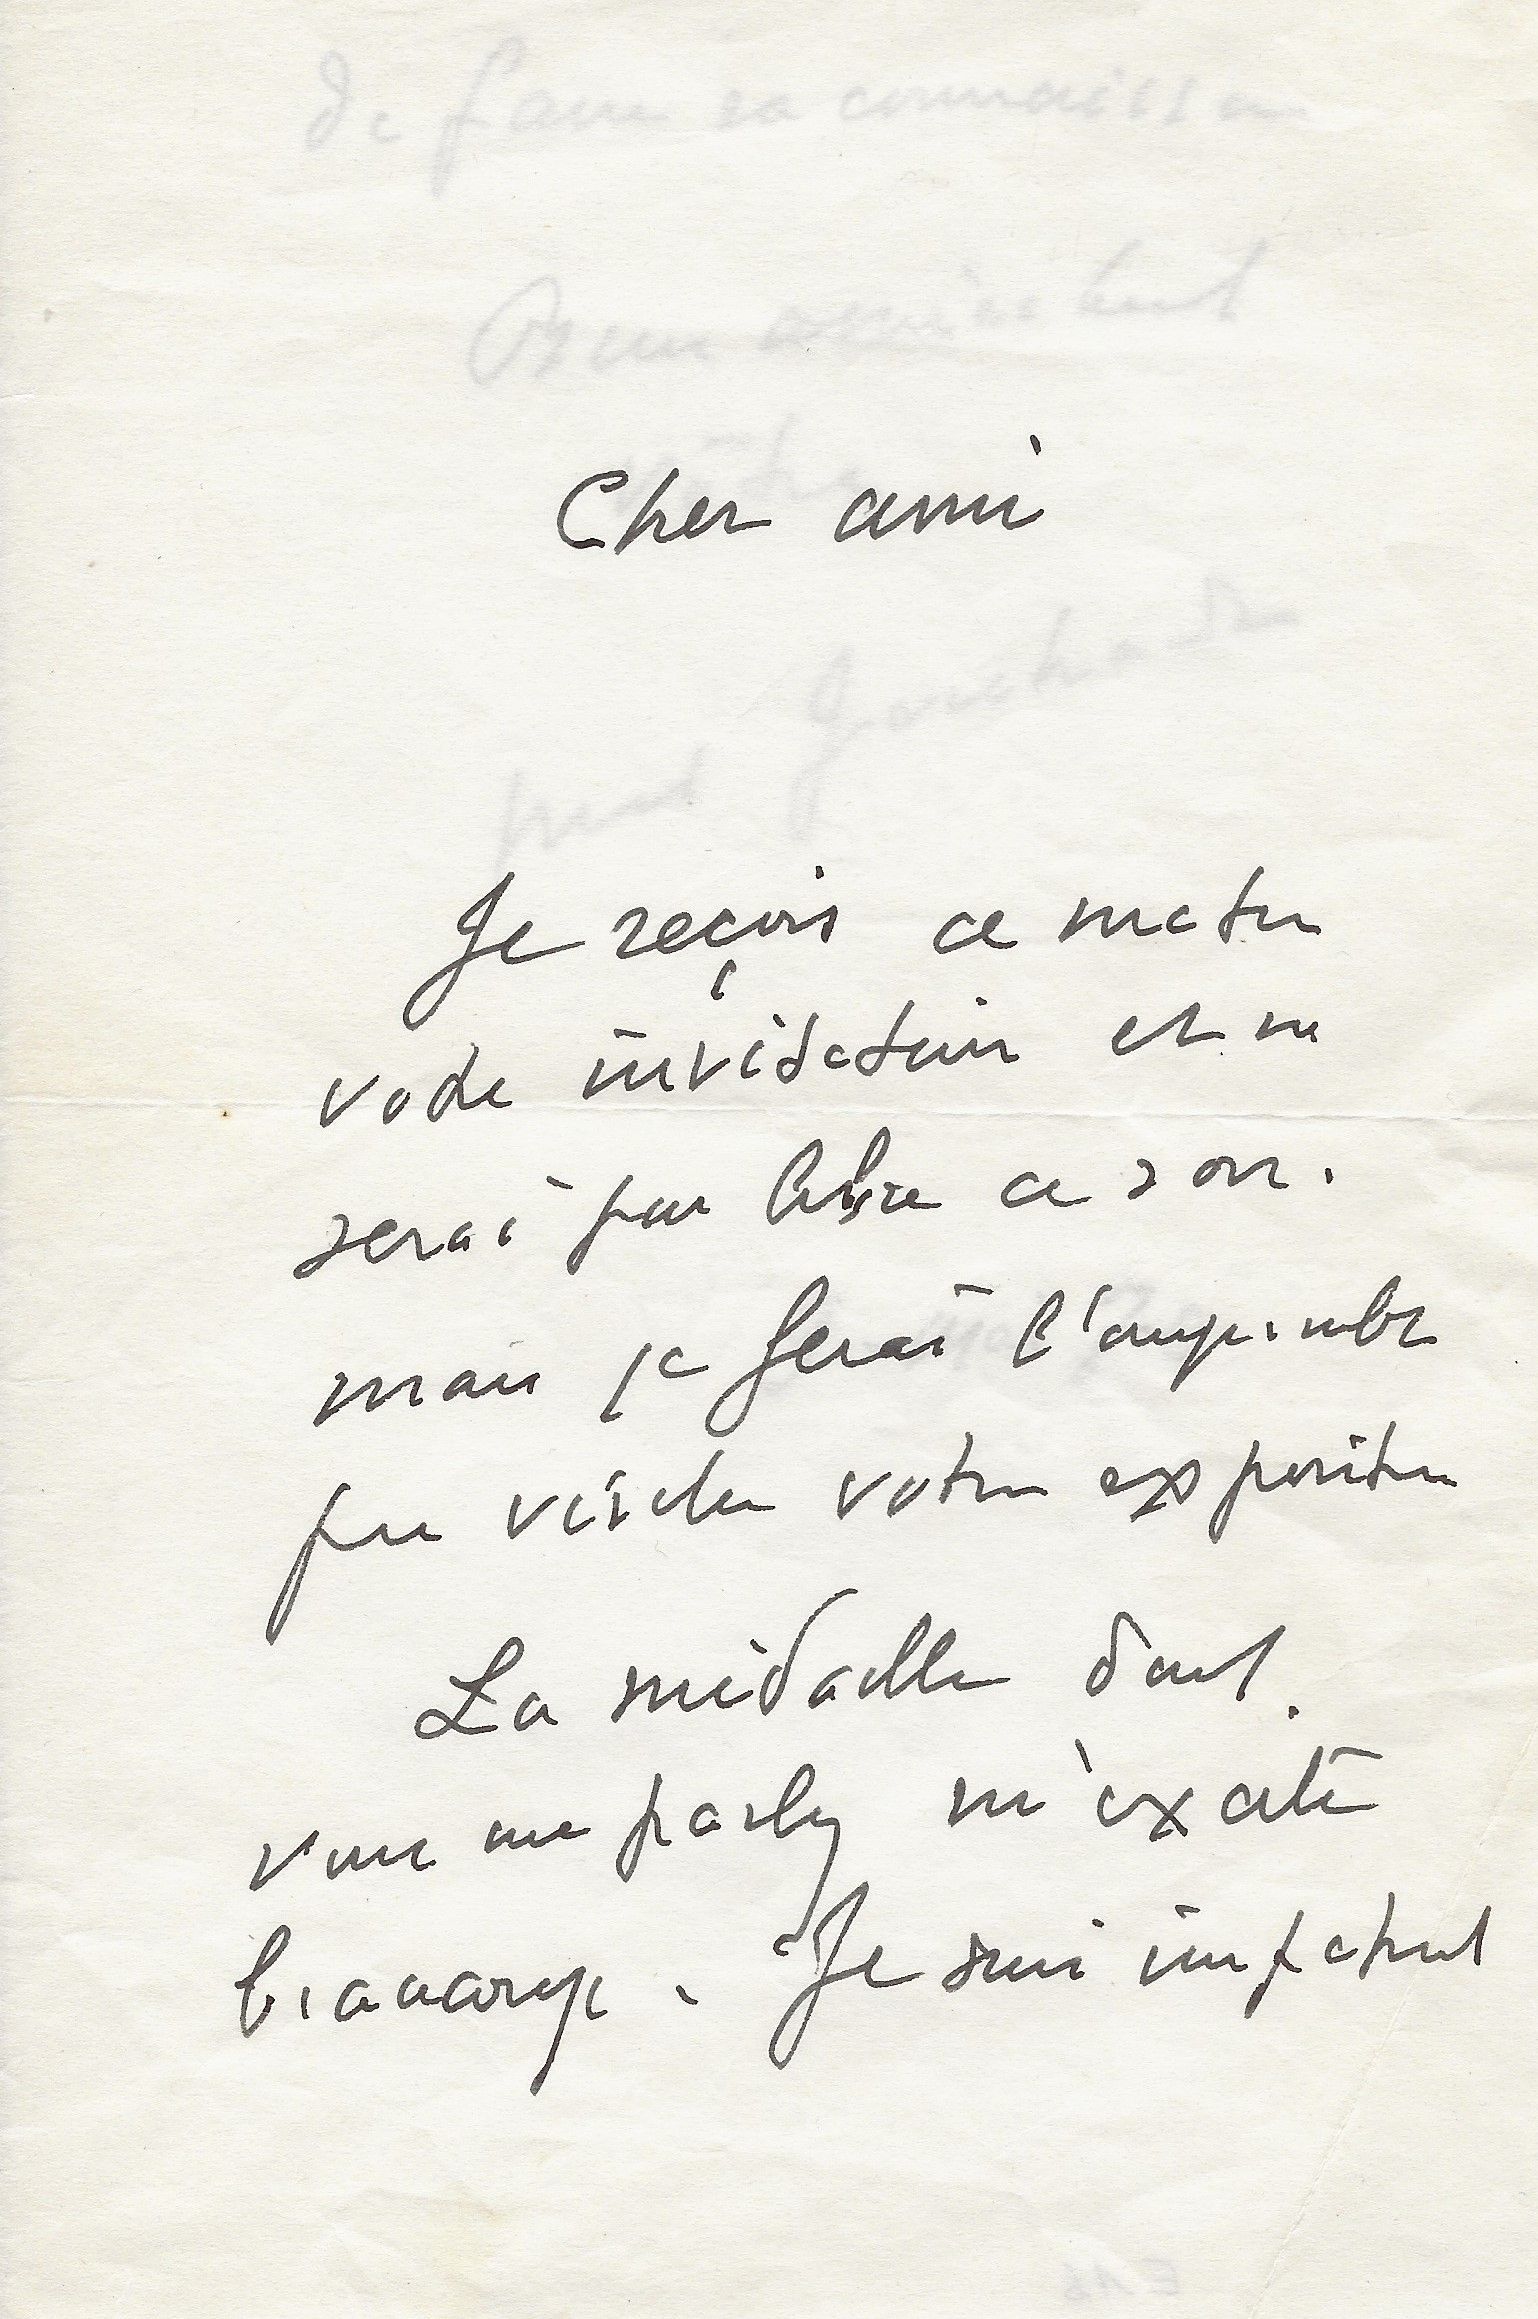 Cher ami
Je reçois ce matin
votre invitation et ne
serai pas libre ce soir.
mais je ferai l'impossible
pour visiter votre exposition
La médaille dont
vous me parlez m'excite
beaucoup. Je suis impatient
de faire sa connaissance
Bien amicalement